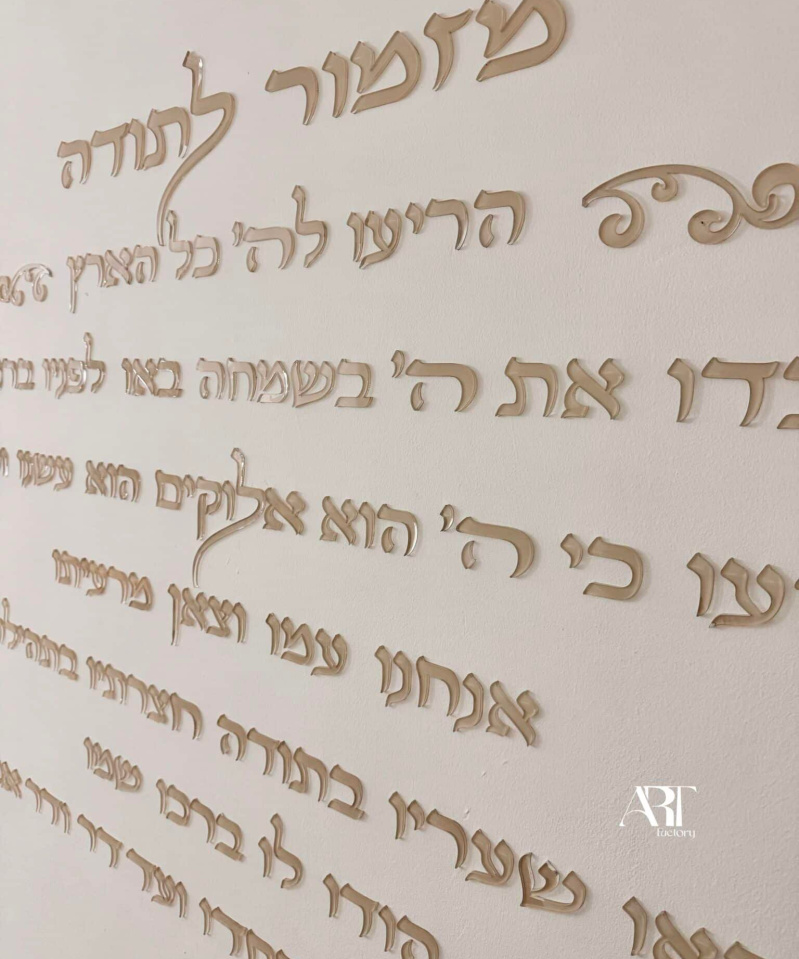 מזמור לתודה
הריעו לה' כל הארץ
את ה' בשמחה באו לפניו
כי ה' הוא אלוקים הוא עשנו
אנחנו עמו וצאן מרעיתו
שעריו בתודה חצרתיו
הודו לו ברכו שמו
חסדו ועד דר ודר
ART
factory